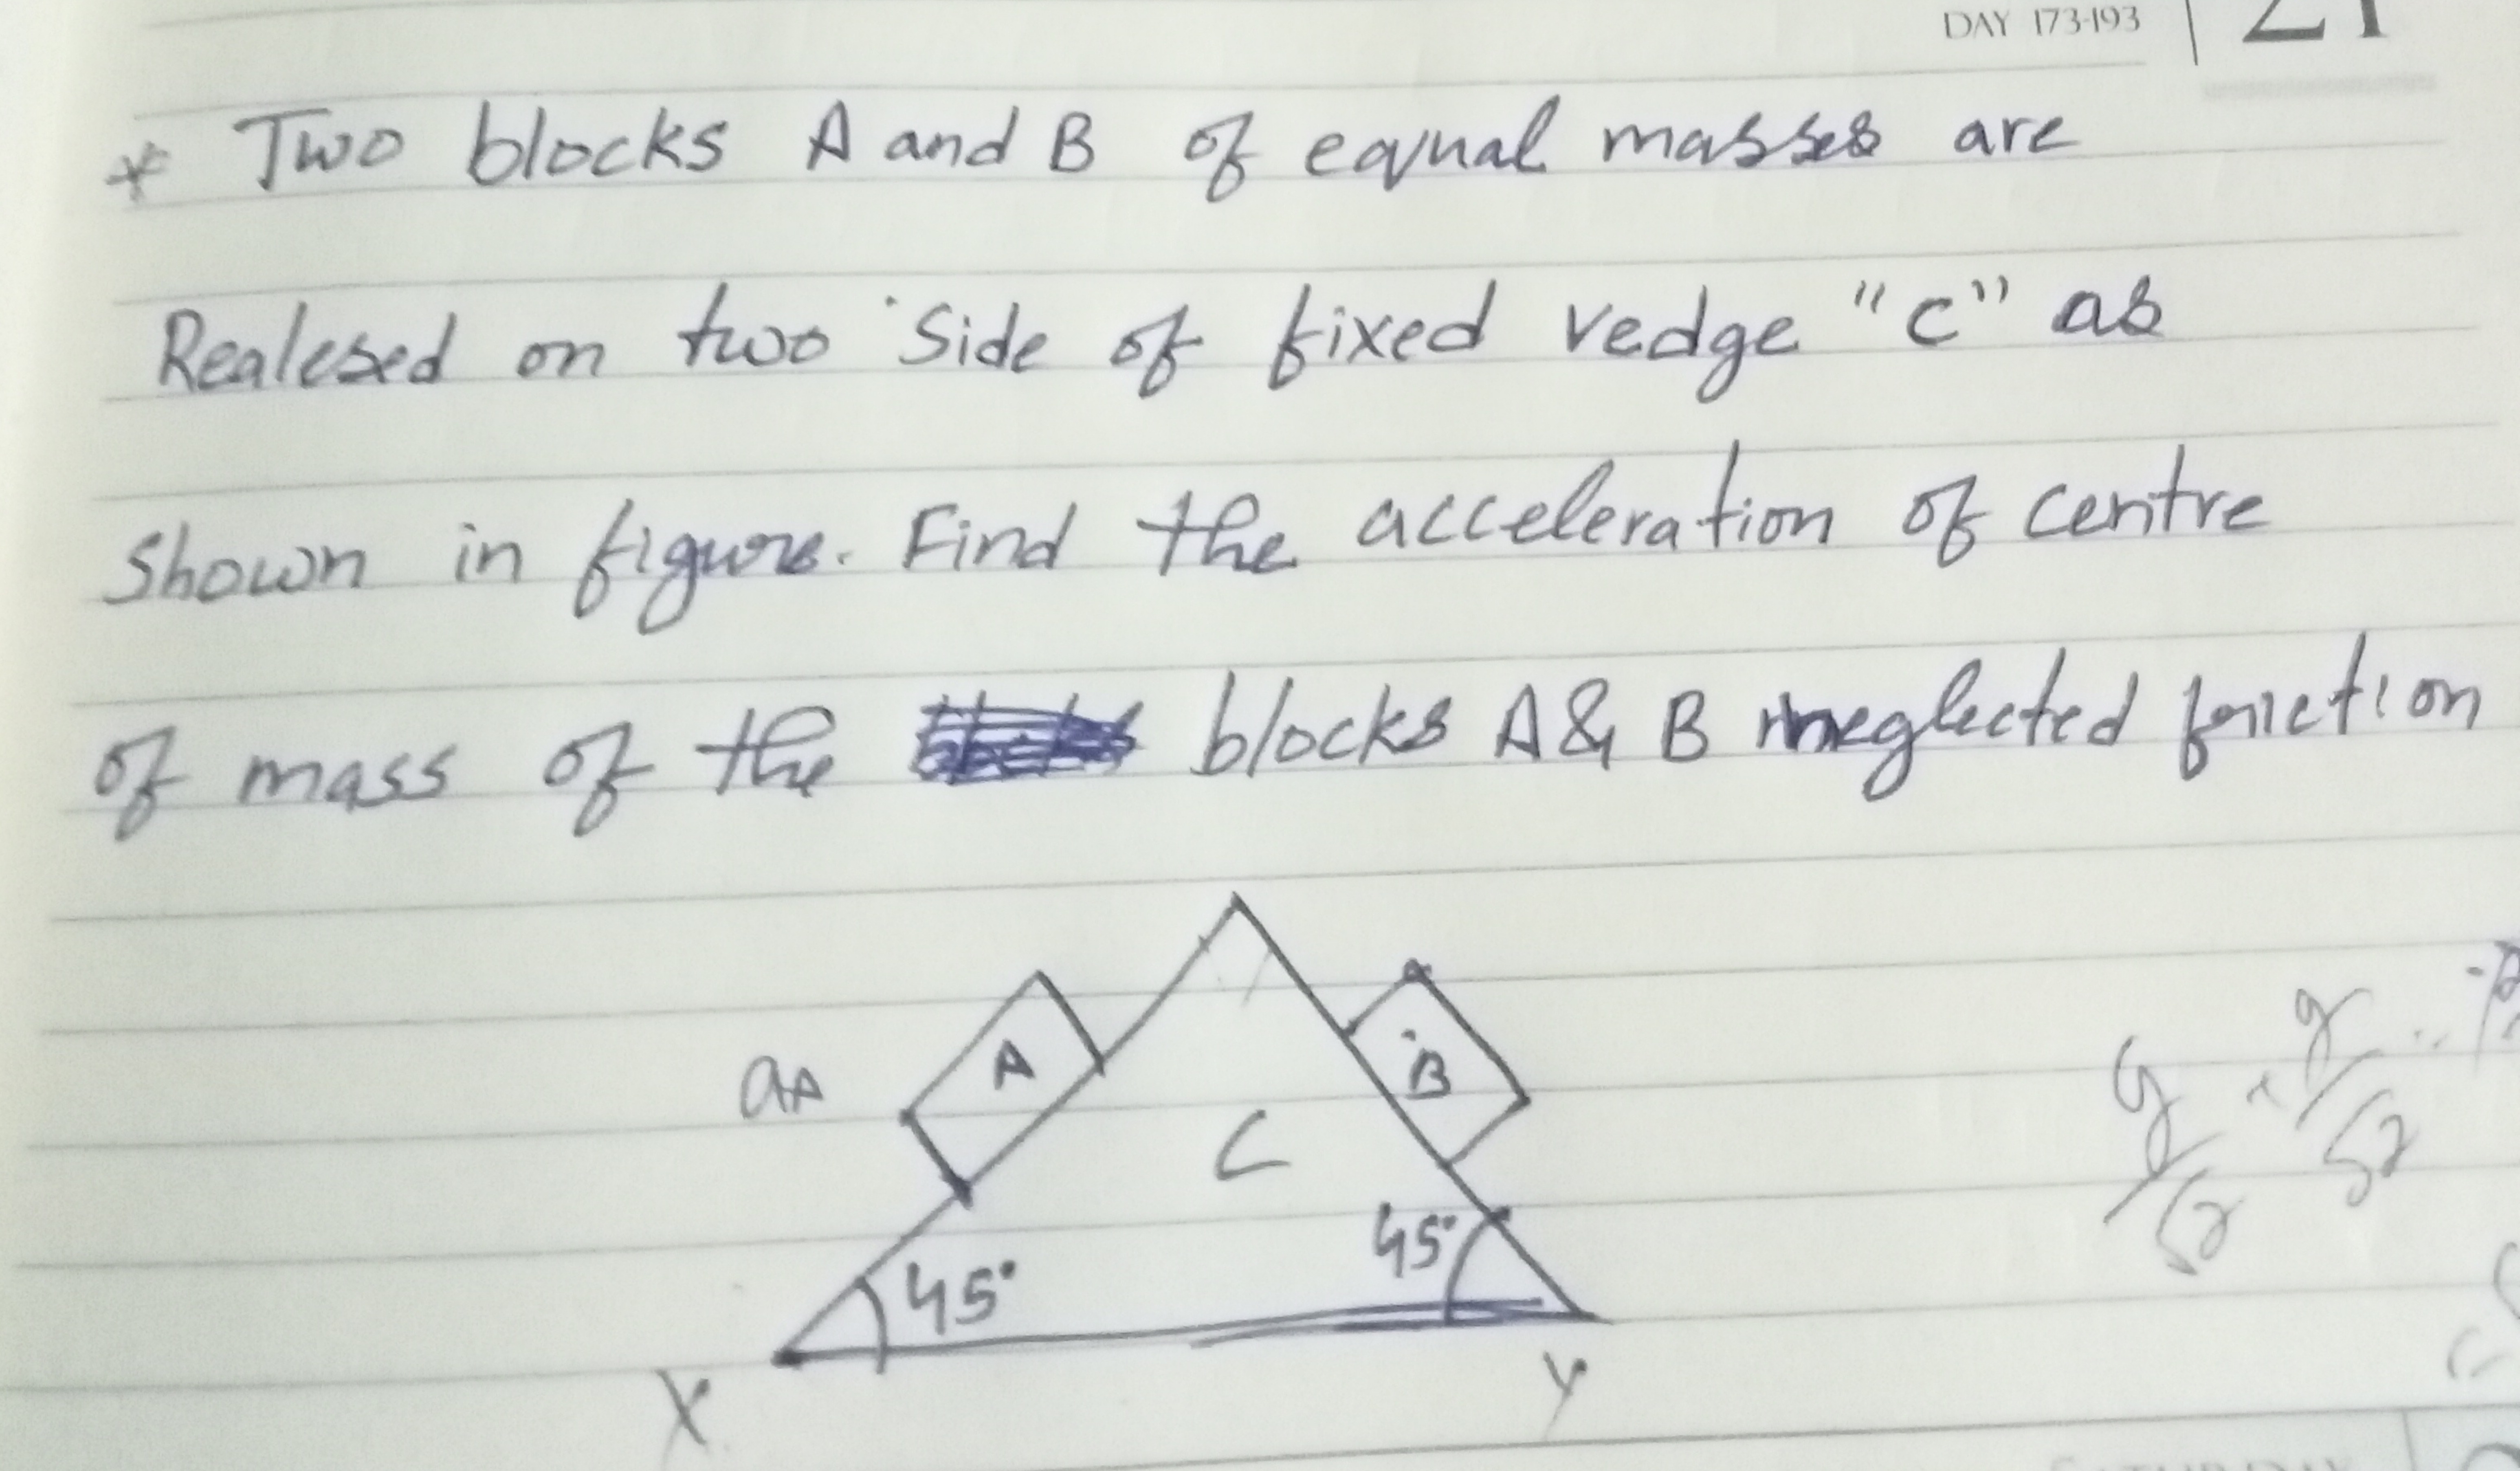 DAY 173-193
* Two blocks A and B of equal masses are
Realesed on two side of fixed vedge "C" as
Shown in figure. Find the acceleration of centre
of mass of the blocks A & B neglected friction
A
B
aA
C
g/√2
g/√2
45°
45°
X
Y